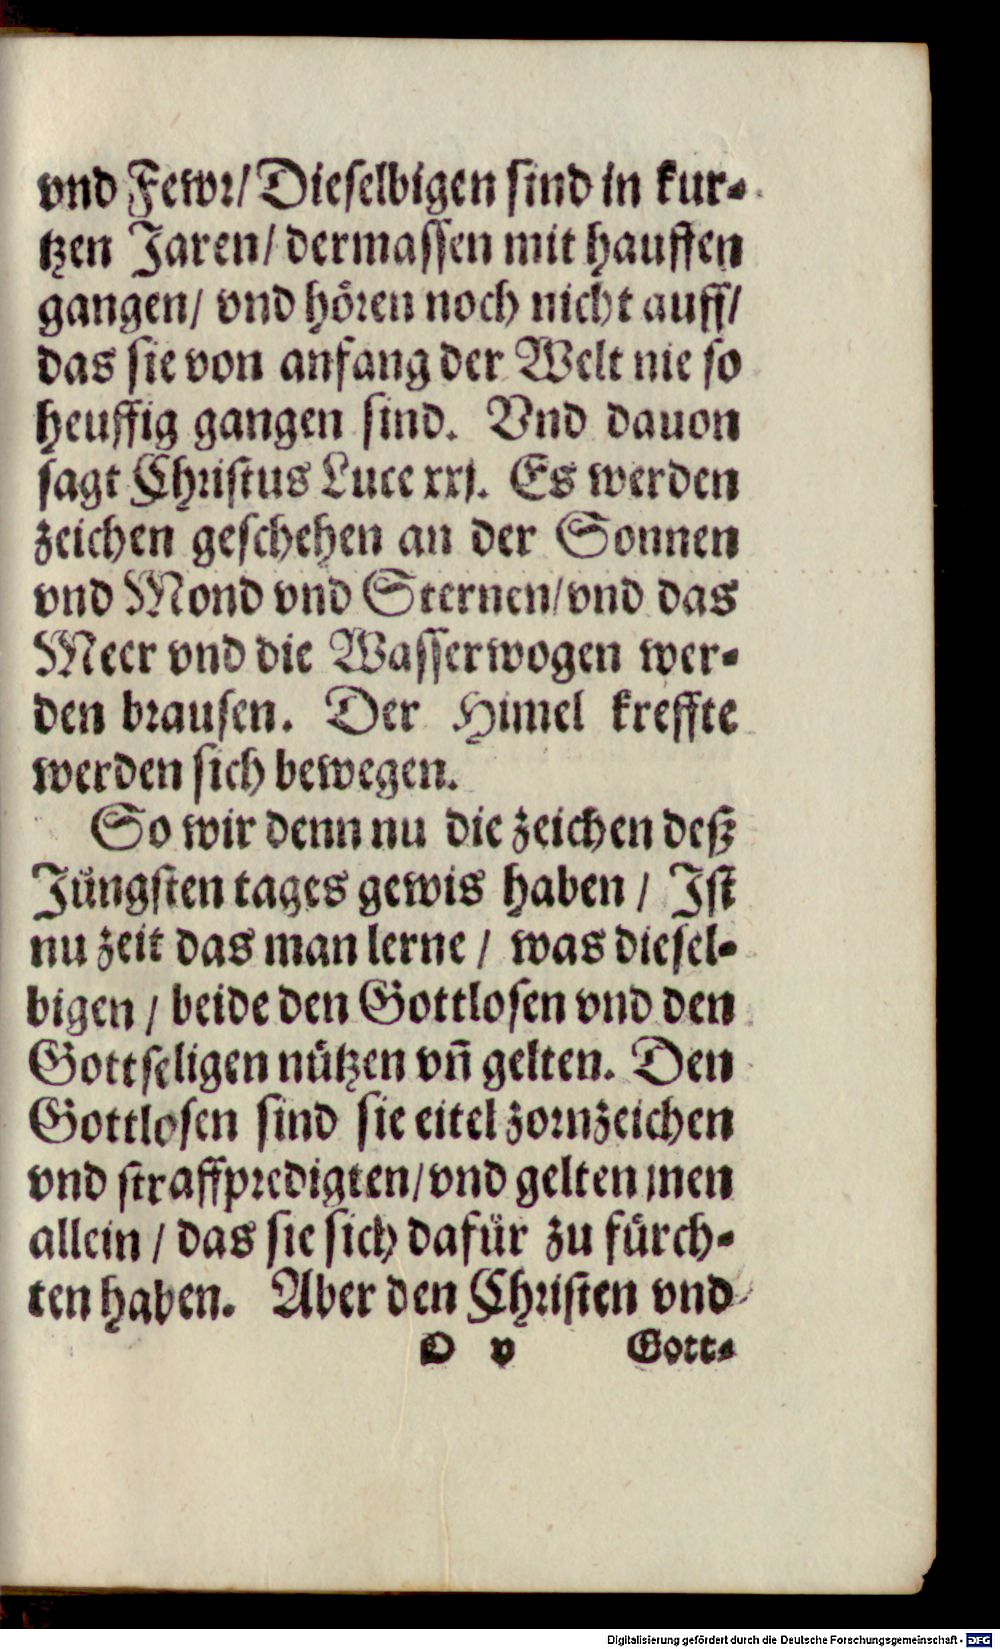 vnd Fewr/ Dieselbigen sind in kur-
tzen Jaren/ dermassen mit hauffen
gangen/ vnd hören noch nicht auff/
das sie von anfang der Welt nie so
heuffig gangen sind. Vnd dauon
sagt Christus Luce xxj. Es werden
zeichen geschehen an der Sonnen
vnd Mond vnd Sternen/vnd das
Meer vnd die Wasserwogen wer-
den brausen. Der Himel kreffte
werden sich bewegen.
So wir denn nu die zeichen deß
Jüngsten tages gewis haben / Jst
nu zeit das man lerne / was diesel-
bigen / beide den Gottlosen vnd den
Gottseligen nützen vñ gelten. Den
Gottlosen sind sie eitel zornzeichen
vnd straffpredigten/vnd gelten jnen
allein / das sie sich dafür zu fürch-
ten haben. Aber den Christen vnd
D v Gott-
Digitalisierung gefördert durch die Deutsche Forschungsgemeinschaft - DFG